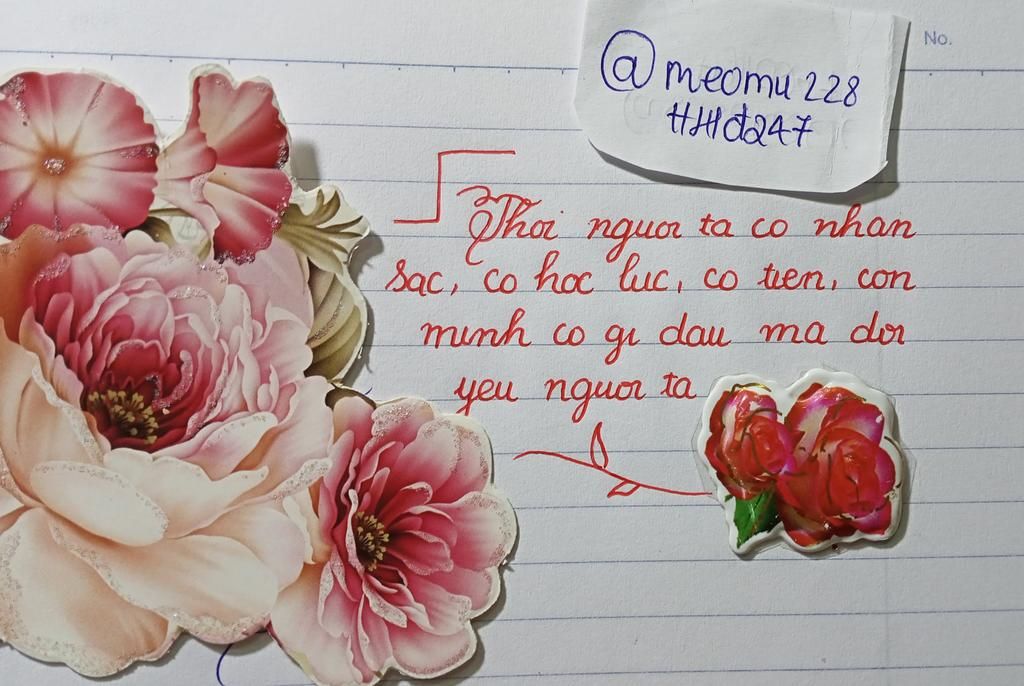 No.
@meomu228
HHđ247
Thoi nguoi ta co nhan
sac, co hoc luc, co tien, con
minh co gi dau ma doi
yeu nguoi ta